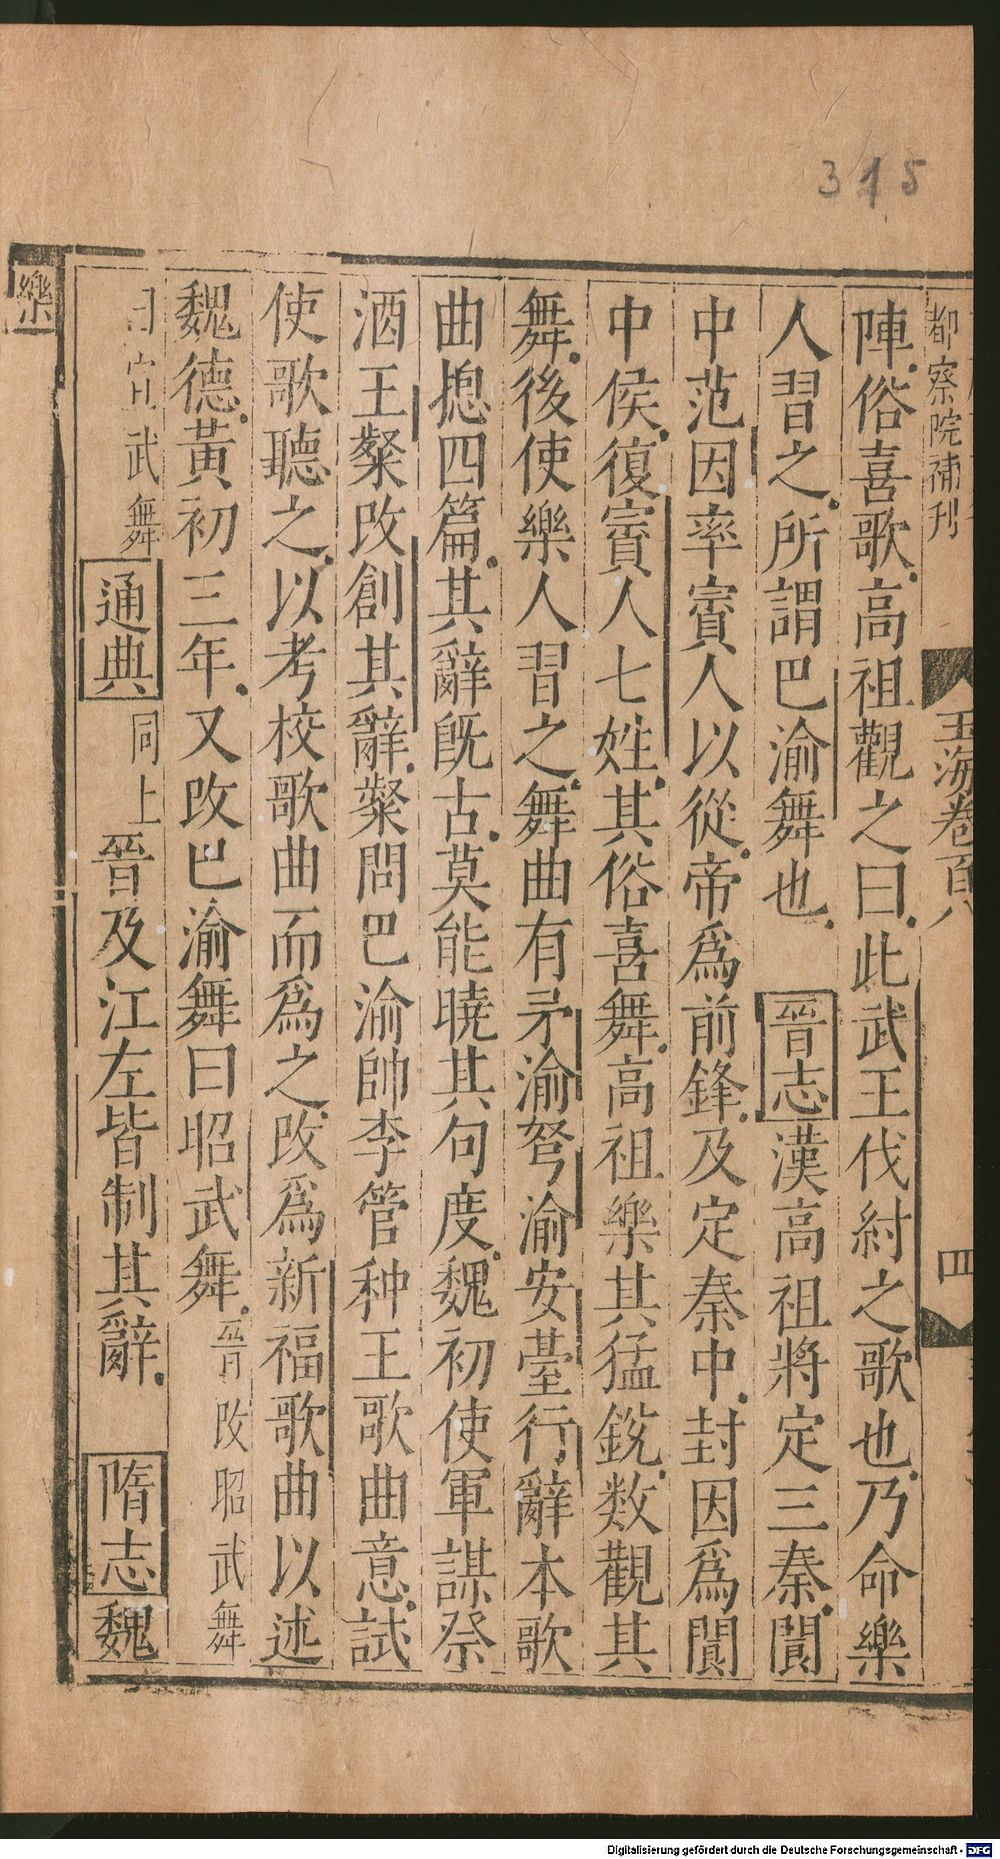 315
都察院補刊
玉海卷百八
四
陣俗喜歌高祖觀之曰此武王伐紂之歌也乃命樂
人習之所謂巴渝舞也 晉志漢高祖將定三秦閬
中范因率賨人以從帝爲前鋒及定秦中封因爲閬
中侯復賨人七姓其俗喜舞高祖樂其猛銳数觀其
舞後使樂人習之舞曲有矛渝弩渝安臺行辭本歌
曲摠四篇其辭旣古莫能曉其句度魏初使軍謀祭
酒王粲改創其辭粲問巴渝帥李管种王歌曲意試
使歌聽之以考校歌曲而爲之改爲新福歌曲以述
魏德黃初三年又改巴渝舞曰昭武舞晉改昭武舞
曰宣武舞通典同上晉及江左皆制其辭 隋志魏
樂
Digitalisierung gefördert durch die Deutsche Forschungsgemeinschaft - DFG